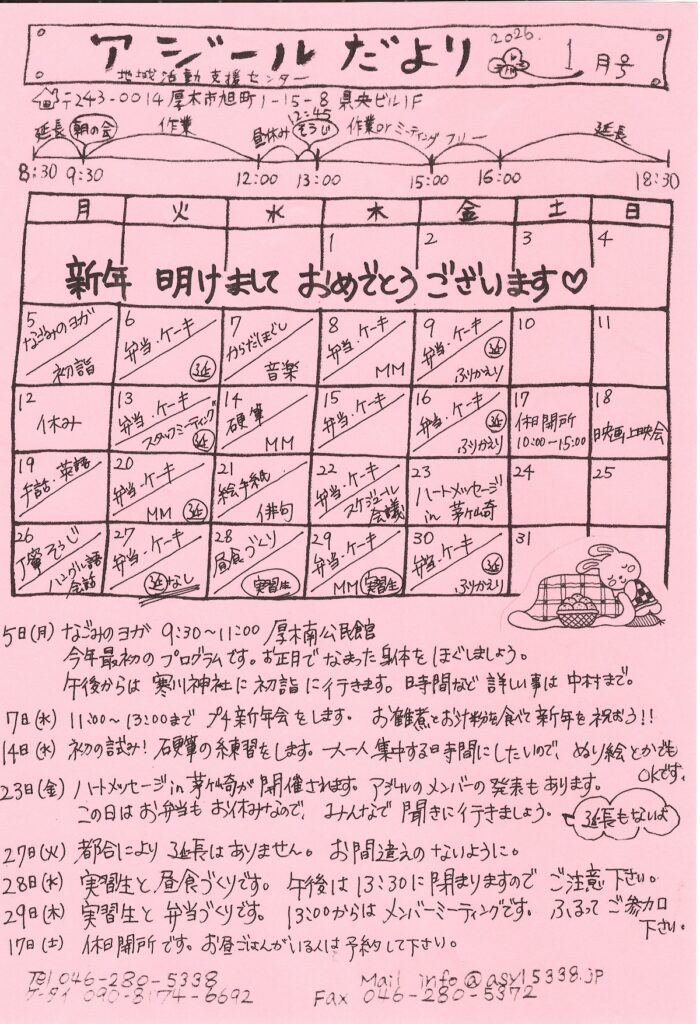 アジールだより
2026.
1月号
地域活動支援センター
〒243-0014 厚木市旭町1-15-8 県央ビル1F
延長 朝の会 作業 昼休み 12:45 そうじ 作業orミーティング フリー 延長
8:30 9:30 12:00 13:00 15:00 16:00 18:30
月 火 水 木 金 土 日
1 2 3 4
新年 明けまして おめでとうございます♡
5 なごみのヨガ 初詣
6 弁当・ケーキ 延
7 からだほぐし 音楽
8 弁当・ケーキ MM
9 弁当・ケーキ 延 ふりかえり
10
11
12 休み
13 弁当・ケーキ スタッフミーティング 延
14 硬筆 MM
15 弁当・ケーキ
16 弁当・ケーキ 延 ふりかえり
17 休日開所 10:00~15:00
18 映画上映会
19 手話・英語
20 弁当・ケーキ MM 延
21 絵手紙 俳句
22 弁当・ケーキ スケジュール会議
23 ハートメッセージin 茅ヶ崎
24
25
26 丁寧そうじ ハングル語会話
27 弁当・ケーキ 延なし
28 昼食づくり 実習生
29 弁当・ケーキ MM 実習生
30 弁当・ケーキ 延 ふりかえり
31
5日(月) なごみのヨガ 9:30~11:00 厚木南公民館
今年最初のプログラムです。お正月でなまった身体をほぐしましょう。
午後からは 寒川神社に初詣に行きます。時間など詳しい事は中村まで。
7日(水) 11:00~13:00まで プチ新年会をします。 お雑煮とお汁粉を食べて新年を祝おう!!
14日(水) 初の試み! 硬筆の練習をします。一人一人集中する時間にしたいので、ぬり絵とかでも
OKです。
23日(金) ハートメッセージin茅ヶ崎が開催されます。アジールのメンバーの発表もあります。
この日はお弁当もお休みなので、みんなで聞きに行きましょう。
延長もないよ
27日(火) 都合により 延長はありません。お間違えのないように。
28日(水) 実習生と昼食づくりです。午後は13:30に閉まりますので ご注意下さい。
29日(木) 実習生と弁当づくりです。13:00からはメンバーミーティングです。ふるってご参加
下さい。
17日(土) 休日開所です。お昼ごはんがいる人は予約して下さい。
Tel 046-280-5338 Mail info@asyl5338.jp
ケータイ 090-8174-6692 Fax 046-280-5372